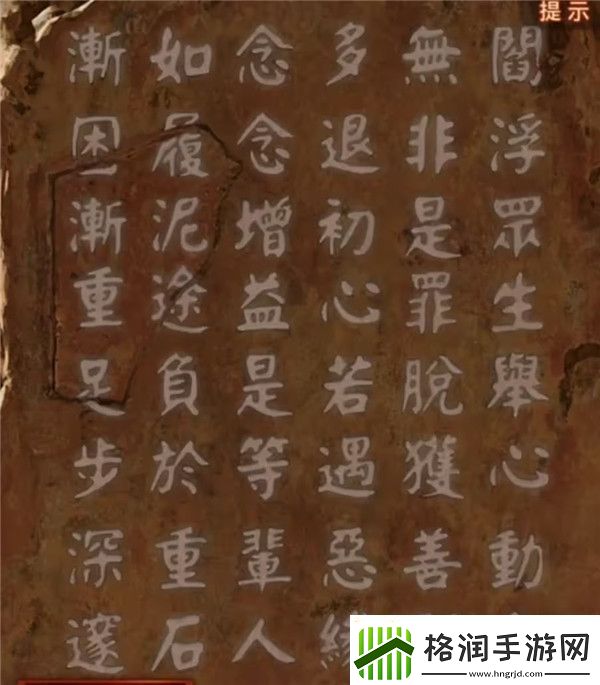 提示
閻浮眾生舉心動
無非是罪脫獲善
多退初心若遇惡緣
念念增益是等輩人
如履泥途負於重石
漸困漸重足步深邃
格润手游网
www.hngrjd.com